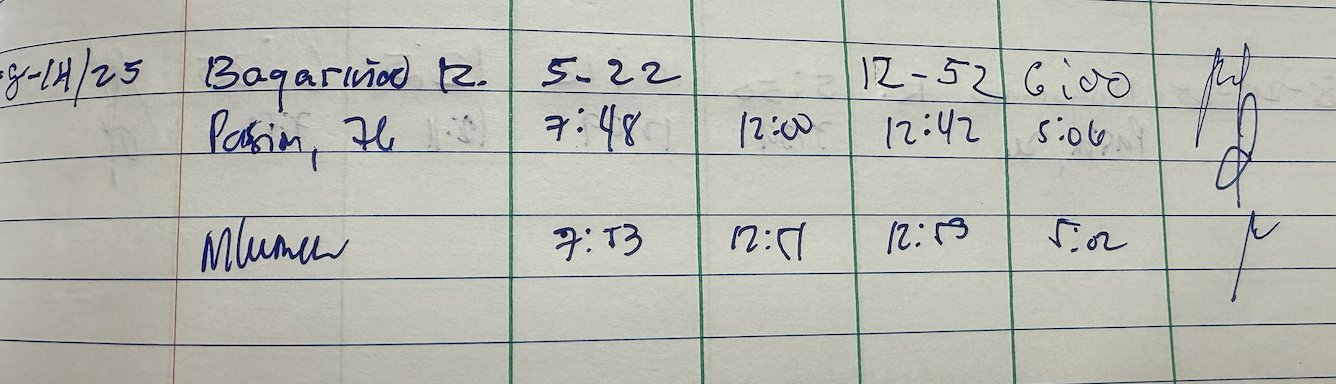 8-14/25 Bagariñao R. 5-22 12-52 6:00
Pasion, 7:48 12:00 12:42 5:06
7:53 12:51 12:53 5:02